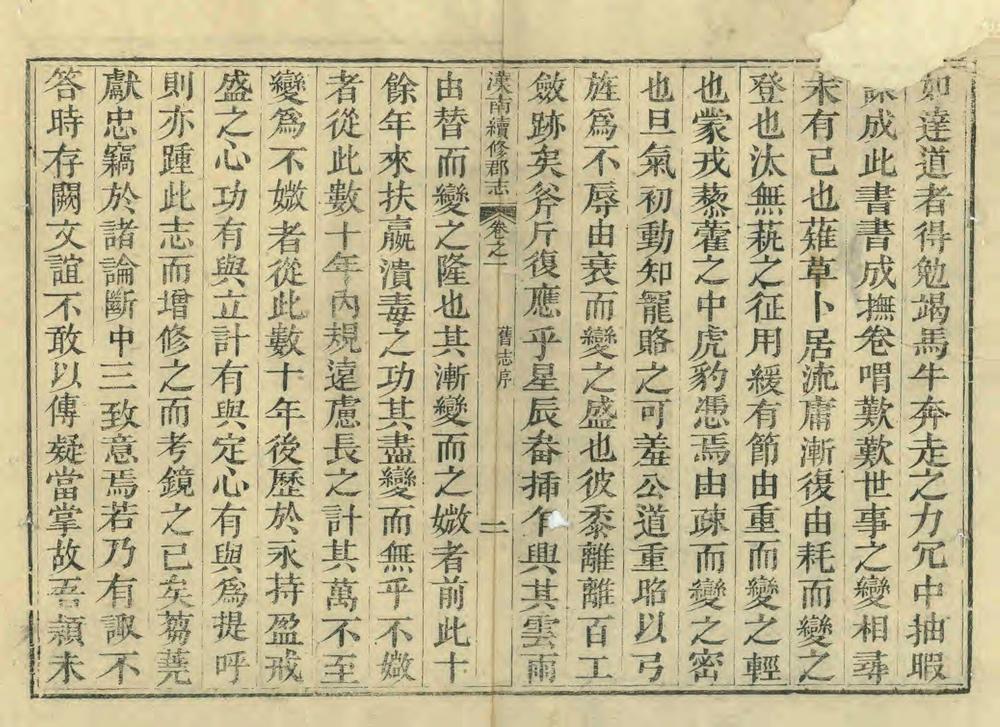 如達道者得勉竭馬牛奔走之力冗中抽暇
成此書書成撫卷喟歎歎世事之變相尋
未有已也薙草卜居流庸漸復由耗而變之
登也汰無蓺之征用緩有節由重而變之輕
也蒙戎藜藿之中虎豹憑焉由疎而變之密
也旦氣初動知寵賂之可羞公道重昭以弓
旌爲不辱由衰而變之盛也彼黍離離百工
斂跡矣斧斤復應乎星辰畚揷乍興其雲雨
漢南續修郡志
卷之一
舊志序
二
由替而變之隆也其漸變而之媺者前此十
餘年來扶羸潰毒之功其盡變而無乎不媺
者從此數十年內規遠慮長之計其萬不至
變爲不媺者從此數十年後歷於永持盈戒
盛之心功有與立計有與定心有與爲提呼
則亦踵此志而增修之而考鏡之已矣蒭蕘
獻忠竊於諸論斷中三致意焉若乃有諏不
答時存闕文誼不敢以傳疑當掌故吾顙未